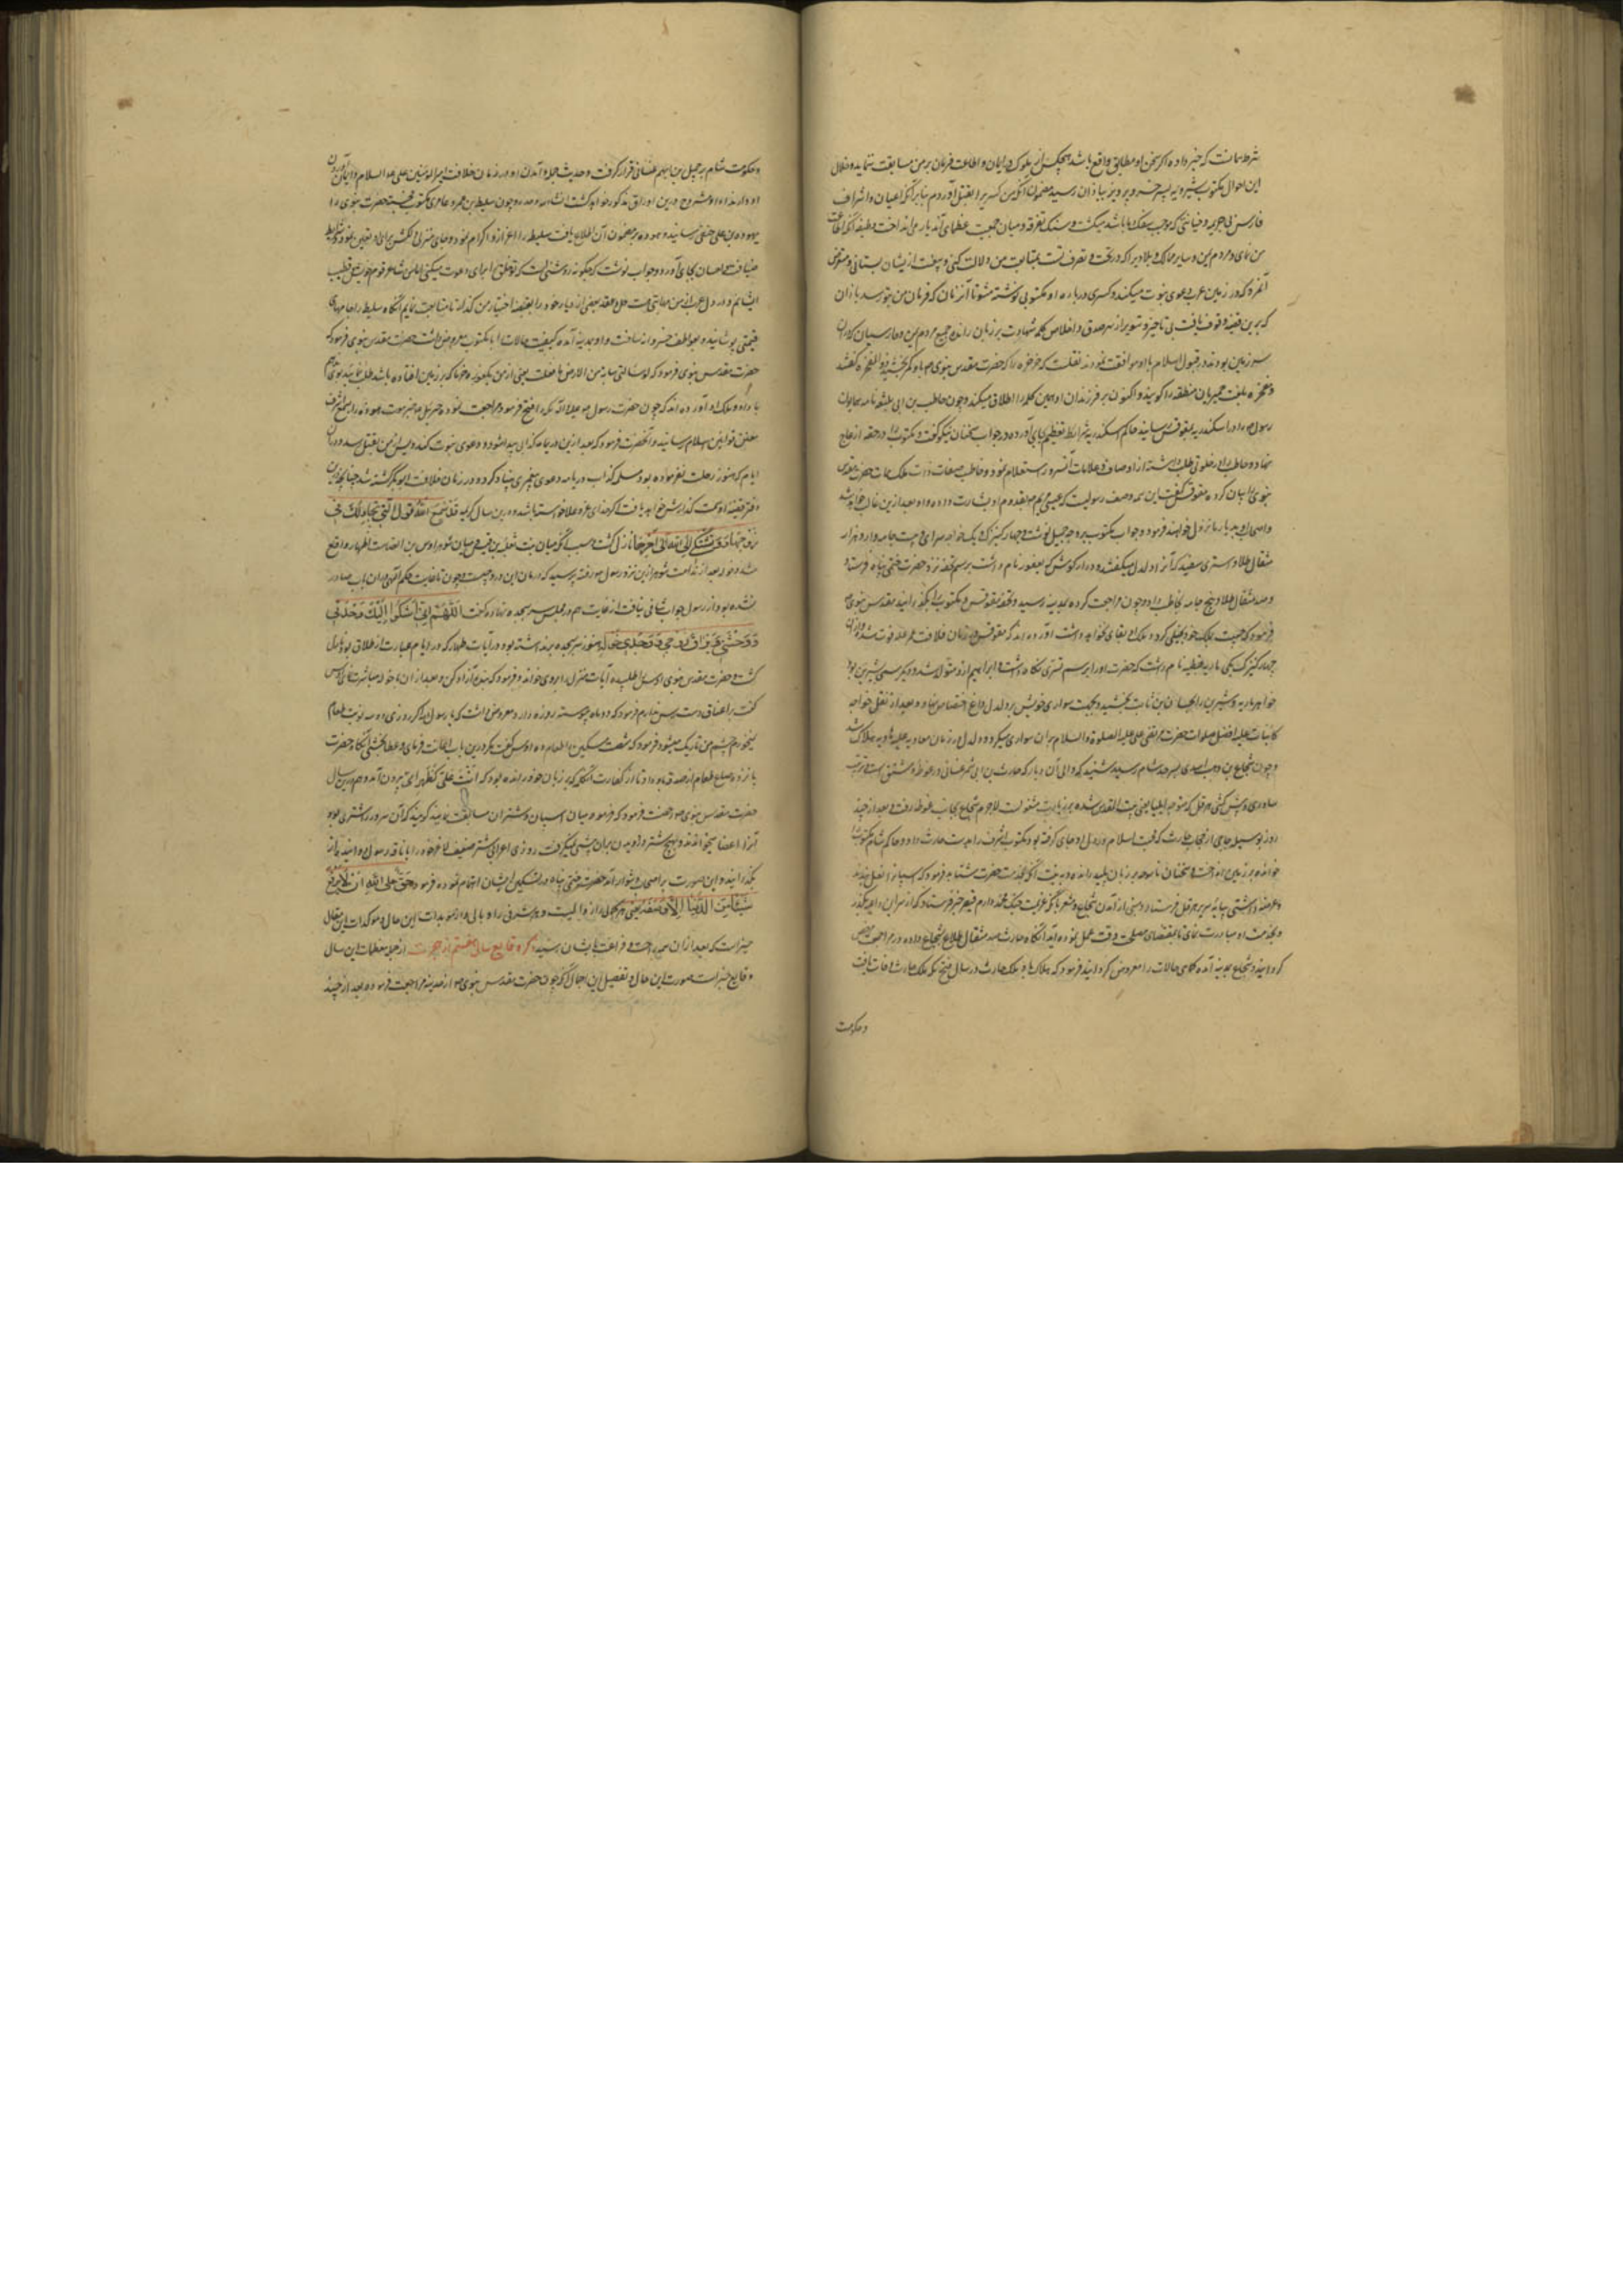 شرط مانست که خبر داده اگر سخن او مطابق واقع باشد هیچکس از ملوک در ایمان و اطاعت فرمان بر من مسابقت ننماید و خلال
این احوال مکتوب شیرویه پسر خسرو پرویز بباذان رسید مضمون آنکه من کسری را بقتل آوردم بنابر آنکه اعیان و اشراف
فارس بی جریمه و خیانتی که موجب سفک دما باشد میکشت و سنگ تفرقه در میان جمعیت عظمای آن دیار می انداخت وظیفه آنکه
من نمای و مردم یمن و سایر ممالک و بلاد را که در تحت تصرف تست بمتابعت من دلالت کنی و بیعت از ایشان بستانی و متعرض
آنمرد که در زمین عرب دعوی نبوت میکند و کسری در باره او مکتوبی نوشته مشو تا آن زمان که فرمان من بتو رسد باذان
که برین قضیه وقوف یافت بی تاخیر و تسویر از سر صدق و اخلاص کلمه شهادت بر زبان رانده جمیع مردم یمن و فارسیان که در آن
سرزمین بودند در قبول اسلام با او موافقت نمودند نقلست که خرخره را که حضرت مقدس نبوی ص باو کمر بخشید ذو المفخره گفتند
و مفخره بلغت حمیریان منطقه را گویند و اکنون بر فرزندان او همین کلمه را اطلاق میکنند و چون حاطب بن ابی بلتعه نامه همایون
رسول ص را در اسکندریه بمقوقس رسانید حاکم اسکندریه شرایط تعظیم بجای آورده در جواب سخنان نیکو گفت و مکتوب را در حقه از عاج
نهاد و حاطب را در خلوتی طلب داشته از اوصاف و علامات آنسرور استعلام نمود و حاطب صفات ذات ملک سمات حضرت مقدس
نبوی را بیان کرده مقوقس گفت این همه وصف رسولیست که عیسی مریم بمقدم او بشارت داده و او بعد ازین غالب خواهد شد
و اصحاب او بدیار ما نزول خواهند فرمود و جواب مکتوب بر وجه جمیل نوشت و چهار کنیزک و یک خواجه سرای و بیست جامه وار و هزار
مثقال طلا و استری سفید که آنرا دلدل میگفتند و دراز گوشی که یعفور نام داشت برسم تحفه نزد حضرت ختمی پناه فرستاد
و صد مثقال طلا و پنج جامه بحاطب داد و چون مراجعت کرده بمدینه رسید و تحفه مقوقس و مکتوب را بگذرانید مقدس نبوی ص
فرمود که خبیث بملک خود بخیلی کرد و ملک او بقای نخواهد داشت آورده اند که مقوقس در زمان خلافت عمر فوت شد و از آن
چهار کنیزک یکی ماریه قبطیه نام داشت که حضرت او را برسم تسری نگاه داشت و ابراهیم ازو متولد شد و دیگر مسمی بشیرین بود
خواهر ماریه و شیرین را بحسان بن ثابت بخشید و بجهت سواری خویش بر دلدل داغ اختصاص نهاد و بعد از نقل خواجه
کاینات علیه افضل صلوات حضرت مرتضی علی علیه الصلوة والسلام بر آن سواری میکرد و دلدل در زمان معاویه علیه هاویه هلاک شد
و چون شجاع بن وهب اسدی بسرحد شام رسید شنید که والی آن دیار که حارث بن ابی شمر غسانی در غوطه دمشق است و ترتیب
ساوری و پیش کش هرقل که متوجه ایلیا یعنی بیت المقدس شده بود بزیارت مشغولست لاجرم شجاع بجانب غوطه رفت و بعد از چند
روز بوسیله حاجبی از حجاب حارث که محبت اسلام در دل او جای گرفته بود مکتوب اشرف را بدست حارث داد و حاکم شام مکتوب را
خوانده بر زمین انداخت و سخنان ناموجه بر زبان پلید رانده و به نیت آنکه بخدمت حضرت شتابد فرمود که اسبان را نعل بندند
و عرضه داشتی بپایه سریر هرقل فرستاد مبنی از آمدن شجاع و مشعر بآنکه عزیمت جنگ محمد دارم قیصر خبر فرستاد که از سر این داعیه بگذر
و بخدمت او مبادرت نمای تا بمقتضای مصلحت وقت عمل نموده آید آنگاه حارث صد مثقال طلا بشجاع داده و در مراجعت مرخص
گردانید و شجاع بمدینه آمده کماهی حالات را معروض گردانید فرمود که هلاک باد ملک حارث و در سال فتح مکه ملک حارث وفات یافت
و حکومت
و حکومت شام بر جبلة بن ایهم غسانی قرار گرفت و حدیث جبله و آمدن او در زمان خلافت امیرالمؤمنین علی علیه السلام و ایمان آوردن
او و ارتداد او مشروح درین اوراق مذکور خواهد گشت انشاءالله وحده و چون سلیط بن عمرو عامری مکتوب حضرت نبوی را
بهوذه بن علی حنفی رسانید و هوذه بر مضمون آن اطلاع یافت سلیط را اعزاز و اکرام نموده و جای منزلی دلکش برای او تعیین نمود و شرایط
ضیافت و احسان بجای آورد و جواب نوشت که چگونه روشنی است که تو خلق را برای دعوت میکنی اما من شاعر قوم خویش و خطیب
ایشانم و در دل عرب از من مهابتی هست حل و عقد بعضی از دیار خود را بقبضه اختیار من گذار تا متابعت نمایم آنگاه سلیط را جامهای
قیمتی پوشانیده بعواطف خسروانه بنواخت و او بمدینه آمده کیفیت حالات را با مکتوب معروض داشت حضرت مقدس نبوی فرمود که
حضرت مقدس نبوی فرمود که لو سالنی سیابة من الارض ما فعلت یعنی اگر از من یک غوره خرما که بر زمین افتاده باشد طلب نماید بوی ندهم
باد او و ملک او آورده اند که چون حضرت رسول ص مکه را فتح فرموده مراجعت نمود جبرئیل ع خبر موت هوذه را بسمع اشرف
مقنن قوانین اسلام رسانید و آنحضرت فرمود که بعد ازین در یمامه کذابی پیدا شود و دعوی نبوت کند و پس از من بقتل رسد و در آن
ایام که هنوز رحلت نفرموده بود مسیلمه کذاب در یمامه دعوی پیغمبری بنیاد کرد و در زمان خلافت ابوبکر کشته شد چنانچه درین
دفتر قضیه او سمت گذارش خواهد یافت اگر خدای عز و علا خواسته باشد و درین سال کریمه قَد سَمِعَ اللّٰهُ قَولَ الَّتی تُجادِلُکَ فی
زَوجِها وَ تَشتَکی اِلَی الله الی آخرها نازل گشت و سبب آنکه میان بنت ثعلبه بن قیس و میان شوهر اوس بن الصامت ظهار واقع
شد و خوله بعد از ندامت شوهر ازین نزد رسول ص رفته پرسید که درمان این درد چیست و چون تا غایت حکم الهی در آن باب صادر
نشده بود از رسول جواب شافی نیافت از غایت هم در مجلس سر بسجده نهاده گفت اَللّٰهُمَّ اِنّی اَشکُوا اِلَیکَ وَحدَتی
وَ وَحشَتی وَ فِراقَ زَوجی هنوز سر سجده بر نداشته بود که آیات ظهار که در ایام عبارت از طلاق بود نازل
گشت و حضرت مقدس نبوی اوس را طلبیده آیات منزل را بر وی خواند و فرمود که بنده آزاد کن و بعد از آن با خوله مباشرت نمای اوس
گفت بر اعتاق دسترس ندارم فرمود که دو ماه پیوسته روزه دار معروض داشت که یا رسول الله اگر روزی دو سه نوبت طعام
نخورم چشم من تاریک میشود فرمود که شصت مسکین را طعام ده اوس گفت مگر درین باب اعانت فرمای و عطا بخشی آنگاه حضرت
پانزده صاع طعام از صدقه باو داد تا از کفارت آنکلمه که بر زبان خود رانده بود که اَنتِ عَلَیَّ کَظَهرِ اُمّی بیرون آمد و هم درین سال
حضرت مقدس نبوی ص رخصت فرمود که در میان اسبان و شتران مسابقت نمایند گویند که آن سرور را شتری بود
آنرا عضبا میخواندند و هیچ شتر در دویدن بر آن پیشی نمیگرفت روزی اعرابی شتر ضعیف لاغر خود را با ناقه رسول دوانیده بر آن
بگذرانید و این صورت بر اصحاب دشوار آمد حضرت ختمی پناه در تسکین ایشان اهتمام نموده فرمود حَقٌّ عَلَی اللّٰهِ اَن لا یَرفَعَ
شَیئاً مِنَ الدُّنیا اِلّا وَضَعَهُ یعنی هر کمالی را زوالیست و هر شرفی را وبالی و از مویدات این حال و موکدات این مقال
خیبر است که بعد از آن همه راحت و فراغت بایشان رسید ذکر وقایع سال هفتم از هجرت از جمله معظمات این سال
وقایع خیبر است صورت این حال و تفصیل این اجمال آنکه چون حضرت مقدس نبوی ص از حدیبیه مراجعت فرموده بعد از چند